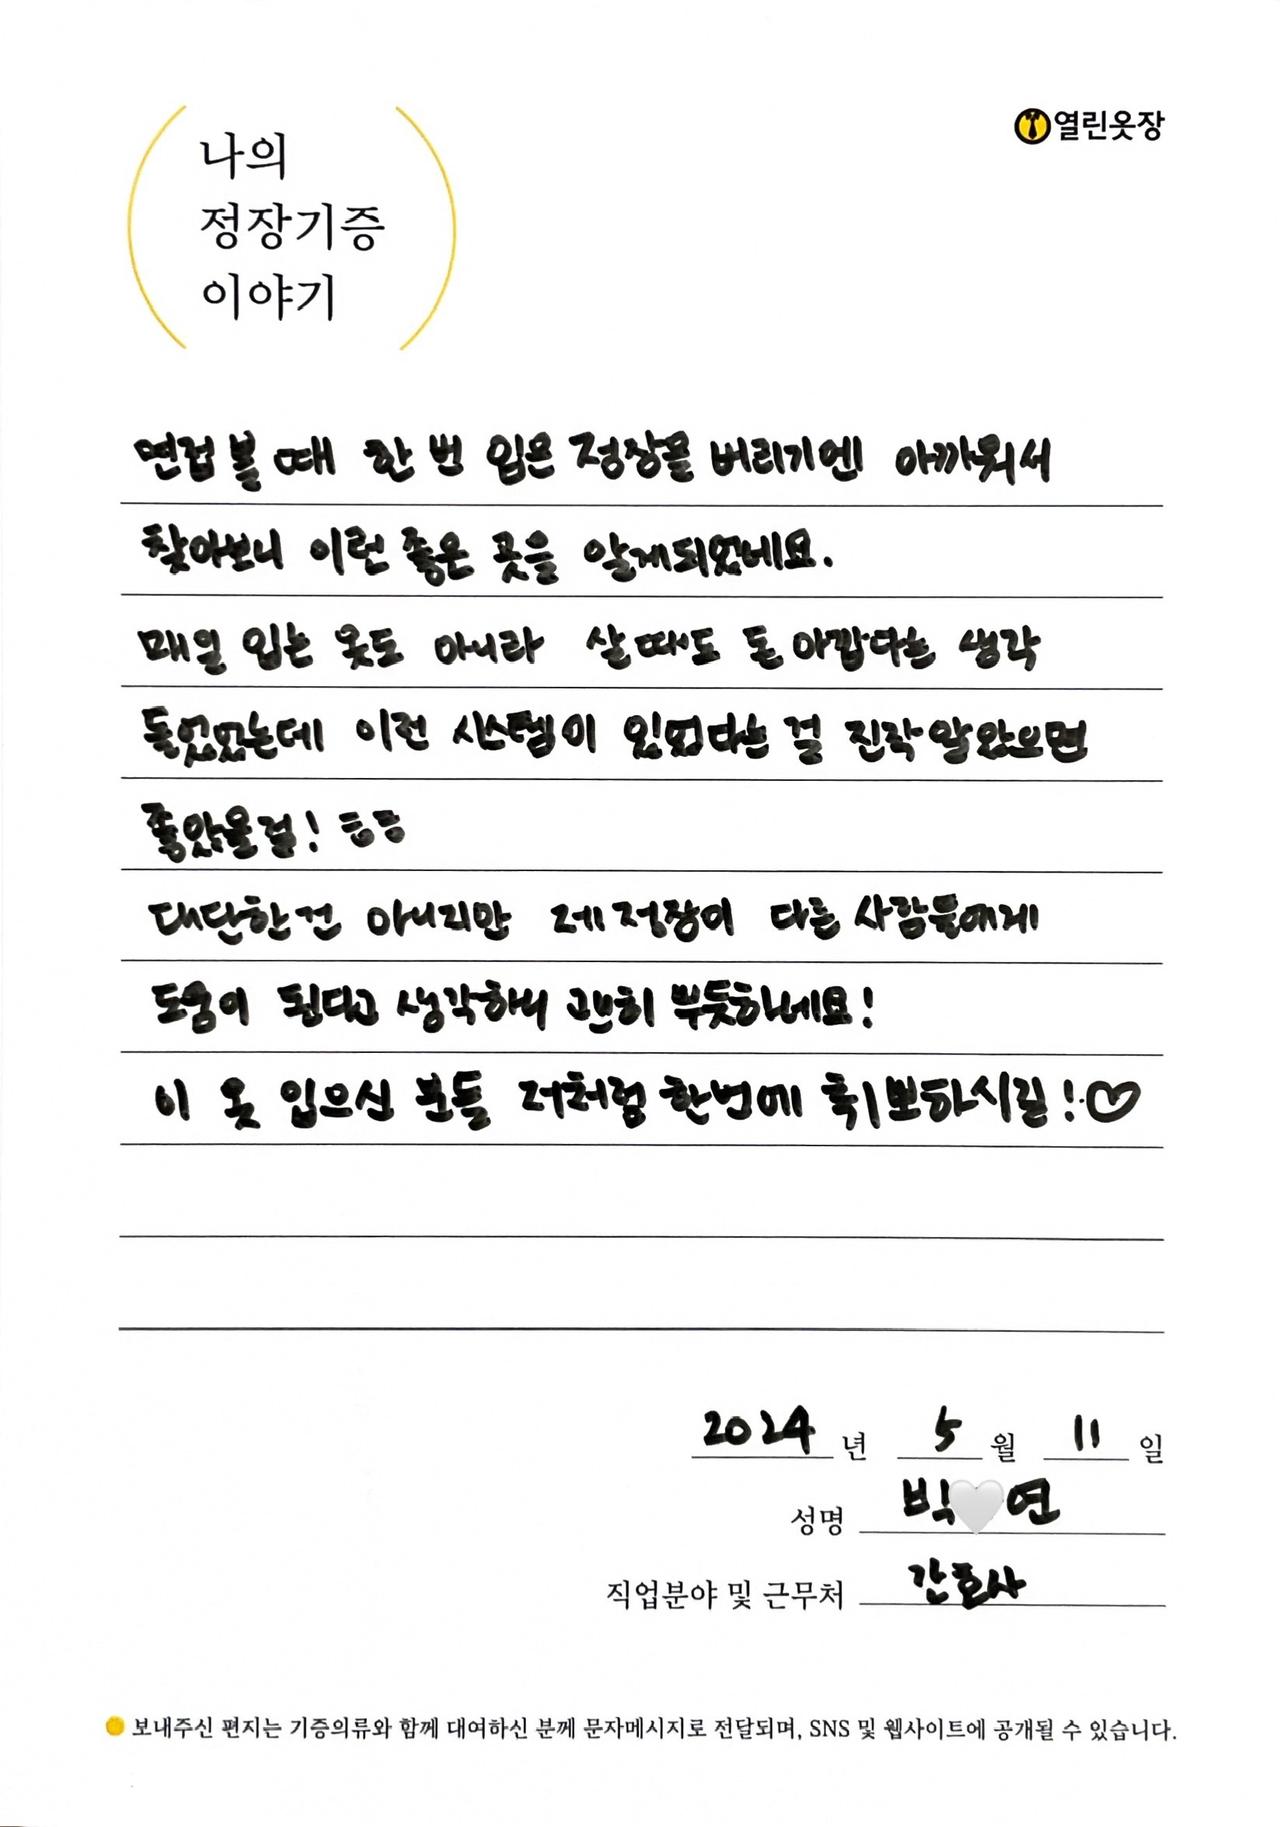 나의
정장기증
이야기
열린옷장
면접 볼 때 한 번 입은 정장을 버리기엔 아까워서
찾아보니 이런 좋은 곳을 알게되었네요.
매일 입는 옷도 아니라 살때도 돈 아깝다는 생각
들었었는데 이런 시스템이 있었다는 걸 진작 알았으면
좋았을걸! ㅎㅎ
대단한건 아니지만 제 정장이 다른 사람들에게
도움이 된다고 생각하니 괜히 뿌듯하네요!
이 옷 입으신 분들 저처럼 한번에 취뽀하시길!♡
2024 년 5 월 11 일
성명 박🤍연
직업분야 및 근무처 간호사
보내주신 편지는 기증의류와 함께 대여하신 분께 문자메시지로 전달되며, SNS 및 웹사이트에 공개될 수 있습니다.